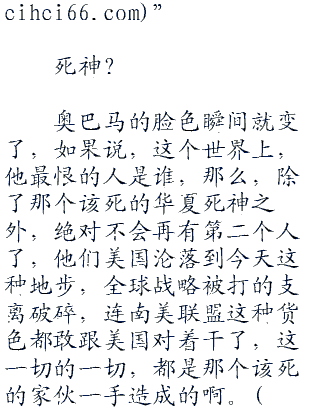 cihci66.com)”
死神？
奥巴马的脸色瞬间就变
了，如果说，这个世界上，
他最恨的人是谁，那么，除
了那个该死的华夏死神之
外，绝对不会再有第二个人
了，他们美国沦落到今天这
种地步，全球战略被打的支
离破碎，连南美联盟这种货
色都敢跟美国对着干了，这
一切的一切，都是那个该死
的家伙一手造成的啊。（